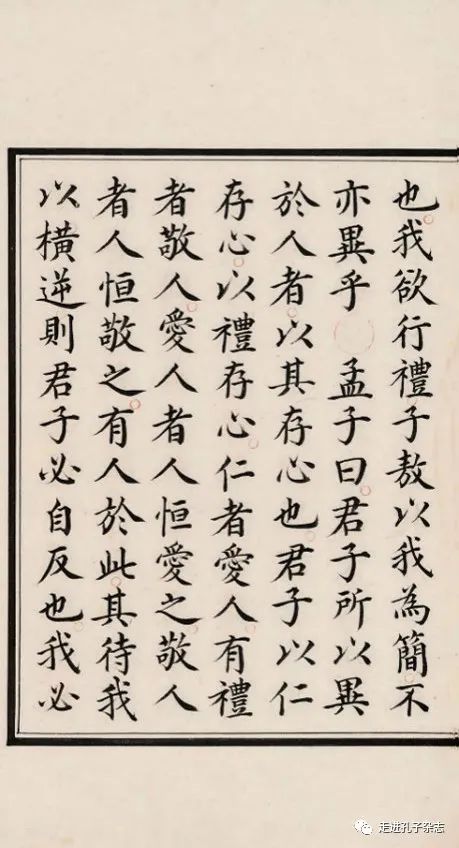 也我欲行禮子敖以我為簡不
亦異乎　孟子曰君子所以異
於人者以其存心也君子以仁
存心以禮存心仁者愛人有禮
者敬人愛人者人恒愛之敬人
者人恒敬之有人於此其待我
以橫逆則君子必自反也我必
走进孔子杂志